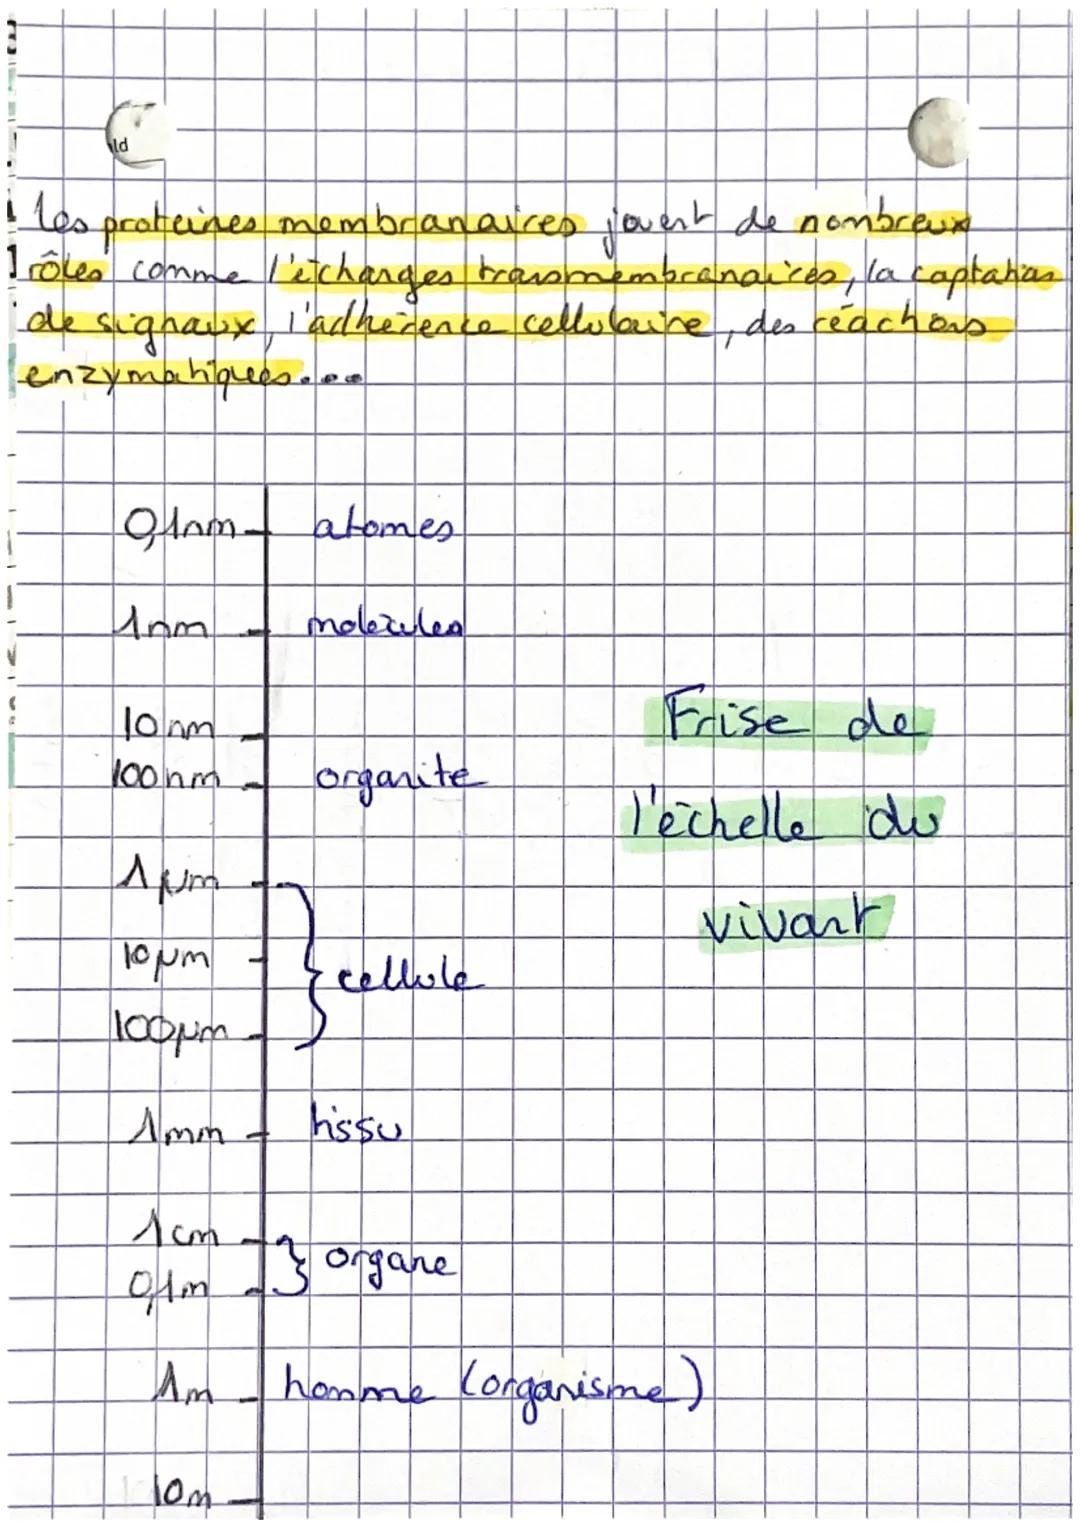 ld
les proteines membranaires jouent de nombreux
rôles comme l'échanges transmembranaires, la captation
de signaux, l'adhérence cellulaire, des réactions
enzymatiques...
0,1nm atomes
1nm molécules
10nm
100nm organite
1µm
10µm cellule
100µm
1mm tissu
1cm organe
0,1m
1m homme (organisme)
10m
Frise de
l'échelle du
vivant